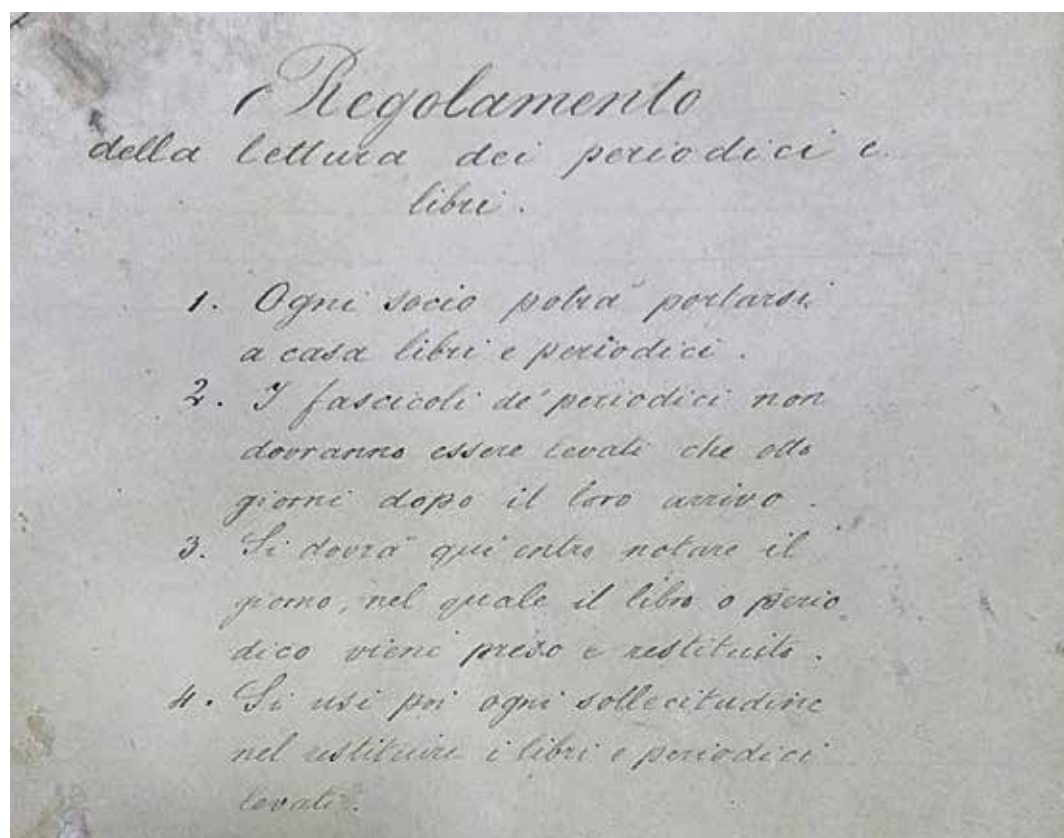 Regolamento
della lettura dei periodici e
libri.
1. Ogni socio potrà portarsi
a casa libri e periodici.
2. I fascicoli de' periodici non
dovranno essere levati che otto
giorni dopo il loro arrivo.
3. Si dovrà qui entro notare il
giorno, nel quale il libro o perio
dico viene preso e restituito.
4. Si usi poi ogni sollecitudine
nel restituire i libri e periodici
levati.